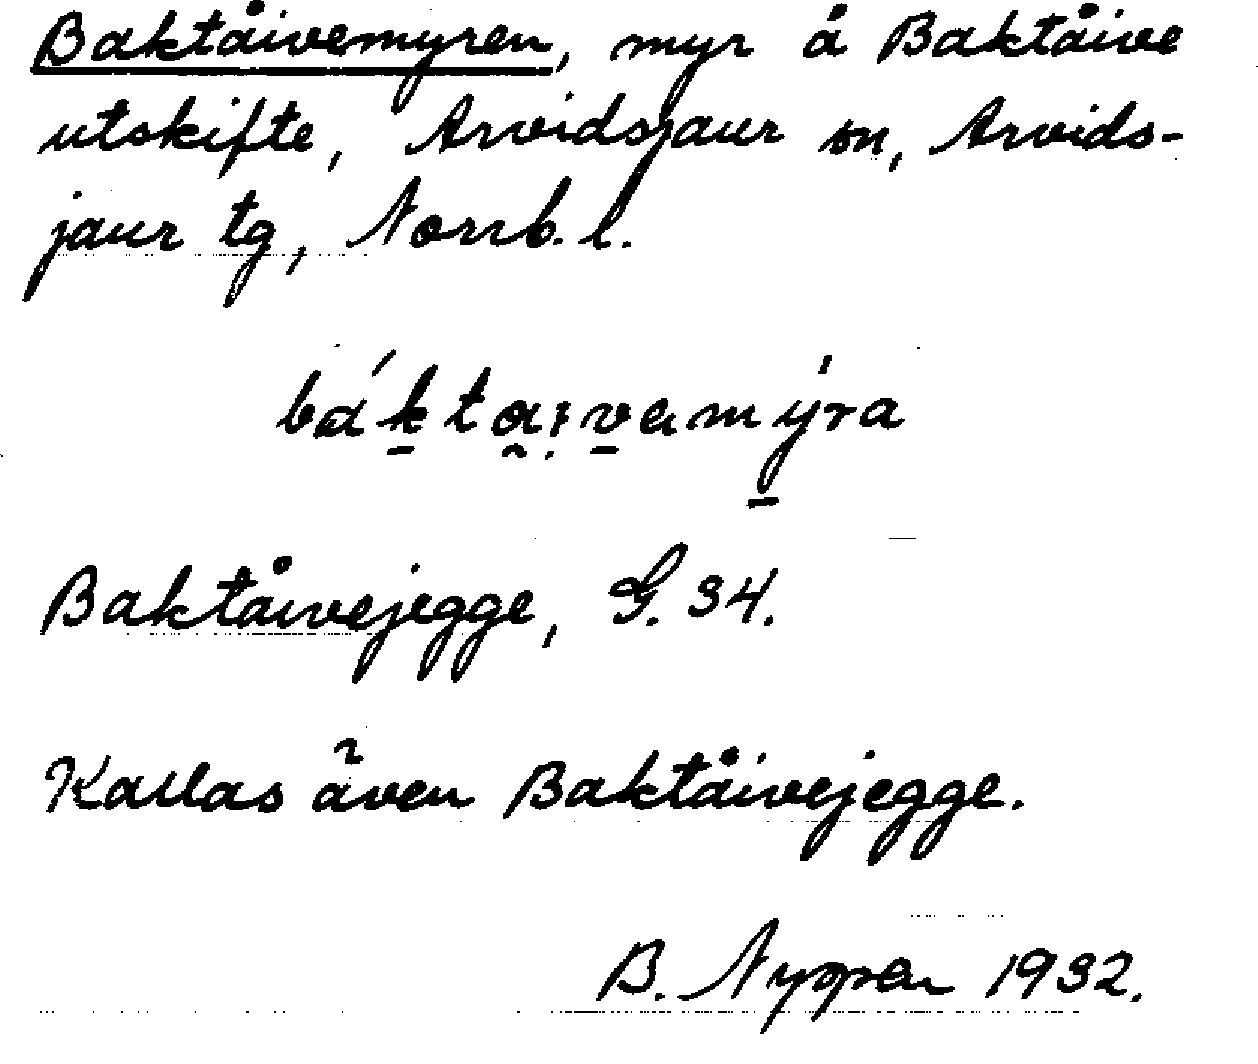 Baktåivemyren, myr å Baktåive
utskifte, Arvidsjaur sn, Arvids-
jaur tg, Norrb. l.
báktai̯vamýra
Baktåivejegge, G. 34.
Kallas även Baktåivejegge.
B. Nyppen 1932.